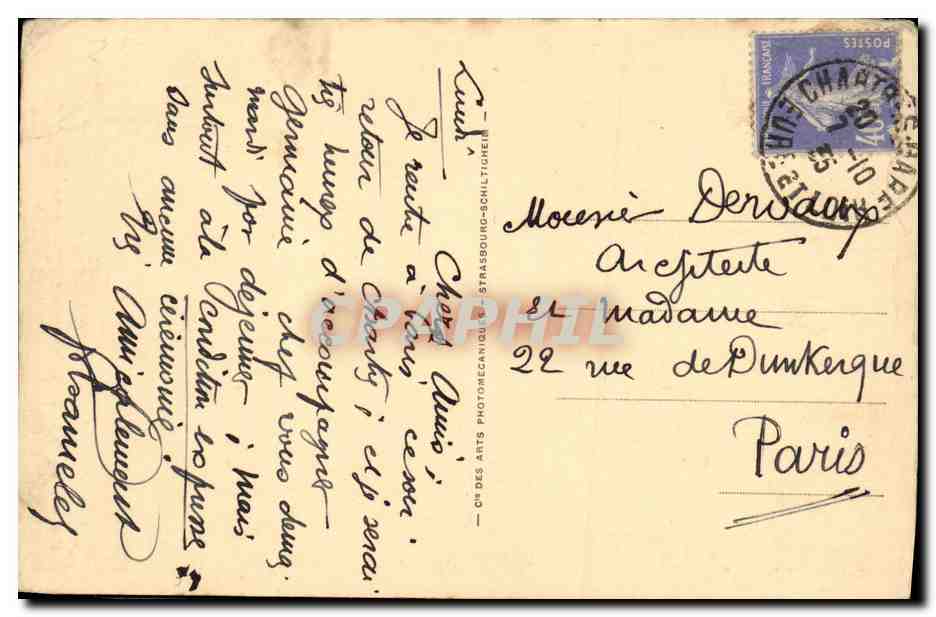 Lundi
Chers Amis,
Je rentre à Paris ce soir
retour de Charity, et je serai
très heureux d'accompagner
Germaine chez vous demain
mardi pour dejeuner, mais
surtout à la condition expresse
sans aucune cérémonie.
Amicalement
— Cie DES ARTS PHOTOMECANIQUES STRASBOURG-SCHILTIGHEIM —
POSTES
FRANÇAISE
40c
CHARTRES GARE
EURE ET LOIR
20
7-10
35
Monsieur
Architecte
et madame
22 rue de Dunkerque
Paris
CPAPHIL